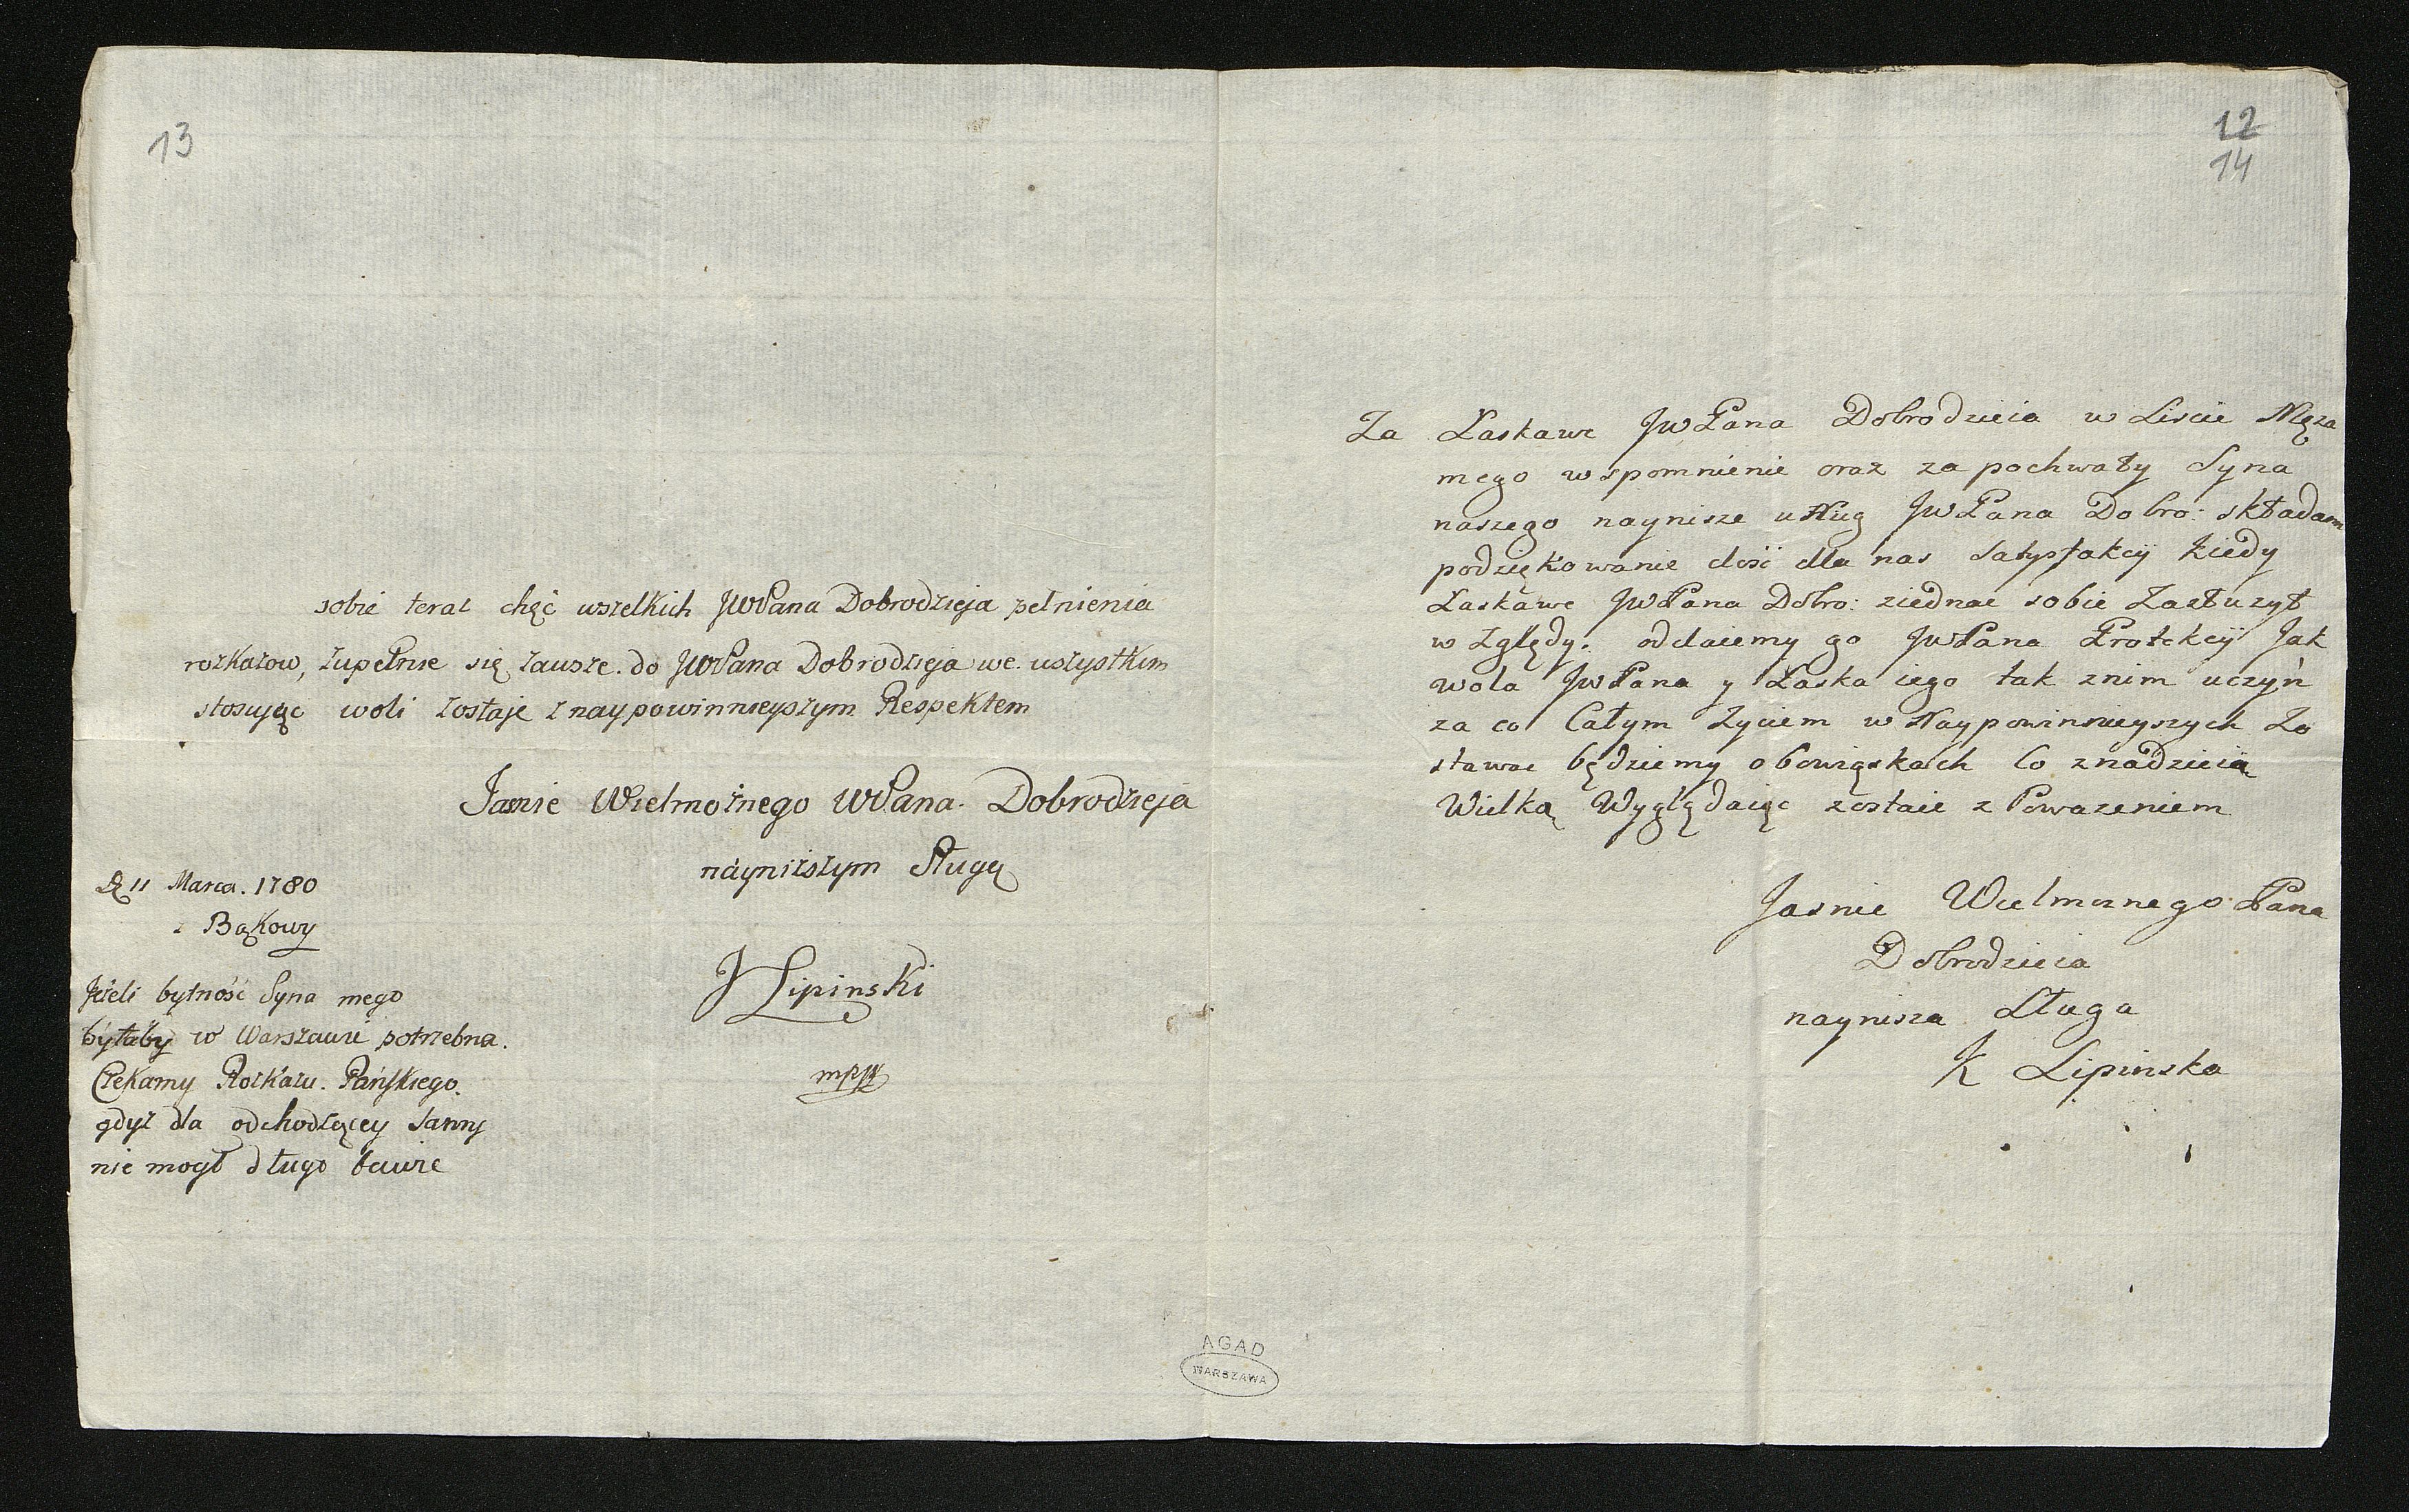 13
sobie teraz chęć wszelkich JWPana Dobrodzieja pełnienia
rozkazow, zupełnie się zawsze do JWPana Dobrodzieja we wszystkim
stosując woli zostaje z naypowinnieyszym Respektem
Jasnie Wielmożnego WPana Dobrodzieja
náyniższym Sługą
D 11 Marca. 1780
z Bąkowy
J Lipinski
mpp
Jeżeli bytność Syna mego
byłaby w Warszawie potrzebna.
Czekamy Rozkazu Pańskiego.
gdyż dla odchodzącey sanny
nie mogł długo bawić
12
14
Za Łaskawe JwPana Dobrodzieia w Liscie Męza
mego wspomnienie oraz za pochwały Syna
naszego naynisze usług JwPana Dobro: składam
podziękowanie dość dla nas Satysfakcÿ kiedy
Łaskawe JwPana Dobro: ziednac sobie Zasłuzył
względy. oddaiemy go JwPana Protekcÿ Jak
wola JwPana y Łaska iego tak znim uczyń
za co Całym Zyciem w Naypowinnieyszych Zo
stawac będziemy obowiąskach Co znadzieią
Wielką Wyglądaiąc zostaie z Powazeniem
Jasnie Wielmoznego Pana
Dobrodzieia
naynisza Sługa
K Lipinska
AGAD
WARSZAWA